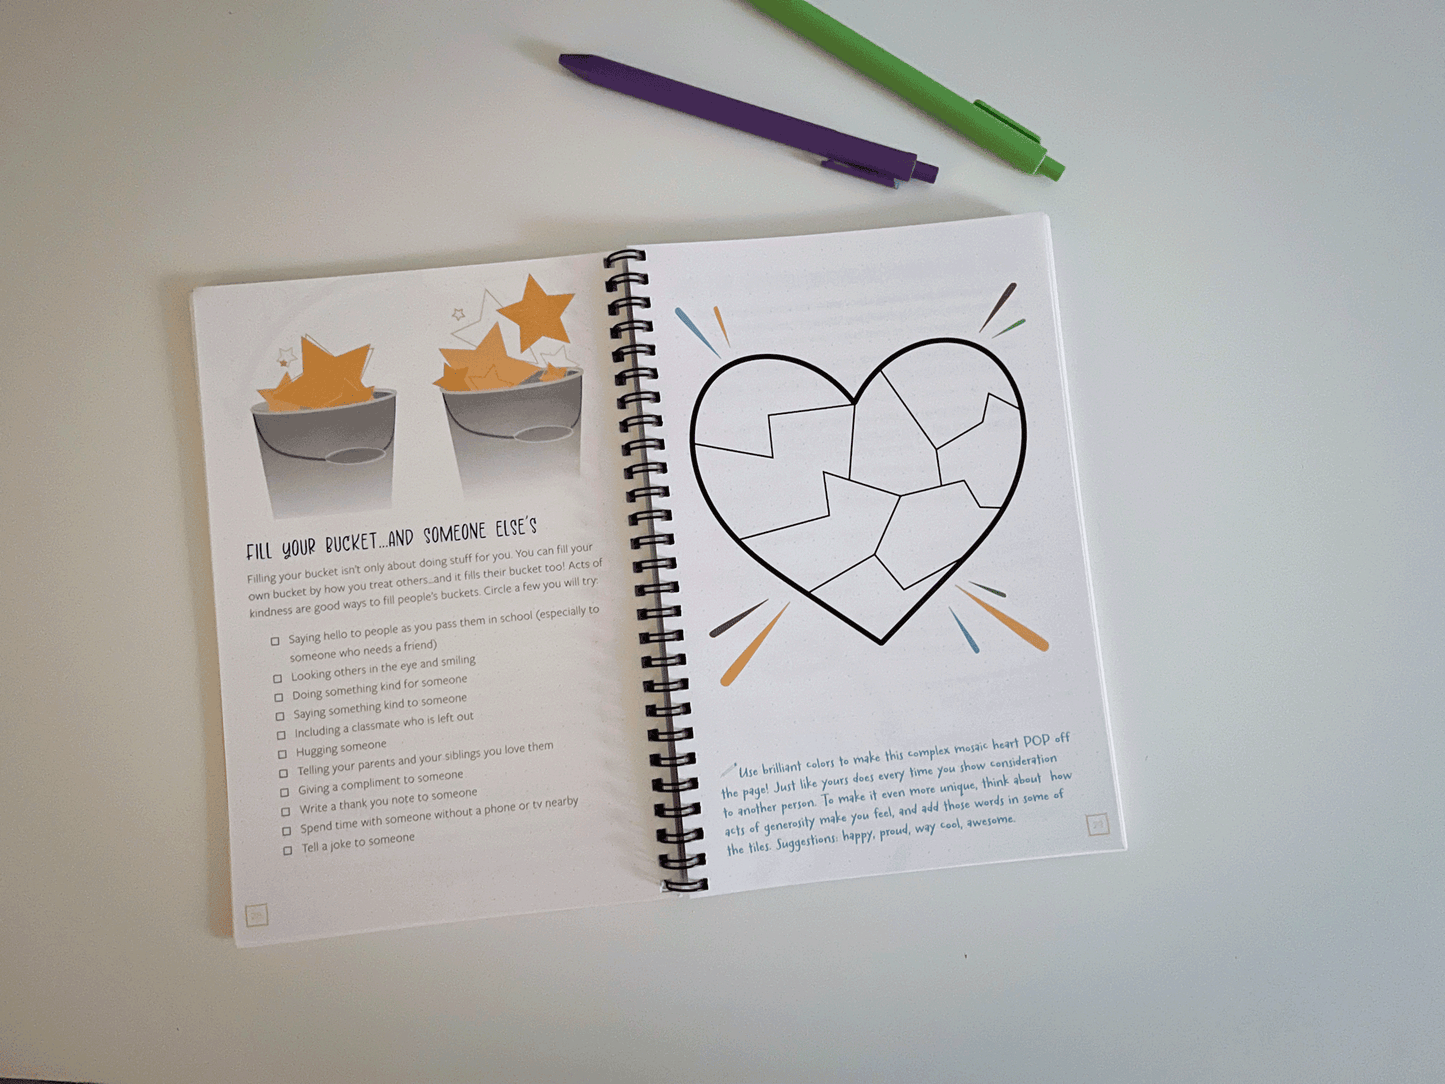 FILL YOUR BUCKET...AND SOMEONE ELSE'S
Filling your bucket isn't only about doing stuff for you. You can fill your
own bucket by how you treat others...and it fills their bucket too! Acts of
kindness are good ways to fill people's buckets. Circle a few you will try:
Saying hello to people as you pass them in school (especially to
someone who needs a friend)
Looking others in the eye and smiling
Doing something kind for someone
Saying something kind to someone
Including a classmate who is left out
Hugging someone
Telling your parents and your siblings you love them
Giving a compliment to someone
Write a thank you note to someone
Spend time with someone without a phone or tv nearby
Tell a joke to someone
Use brilliant colors to make this complex mosaic heart POP off
the page! Just like yours does every time you show consideration
to another person. To make it even more unique, think about how
acts of generosity make you feel, and add those words in some of
the tiles. Suggestions: happy, proud, way cool, awesome.